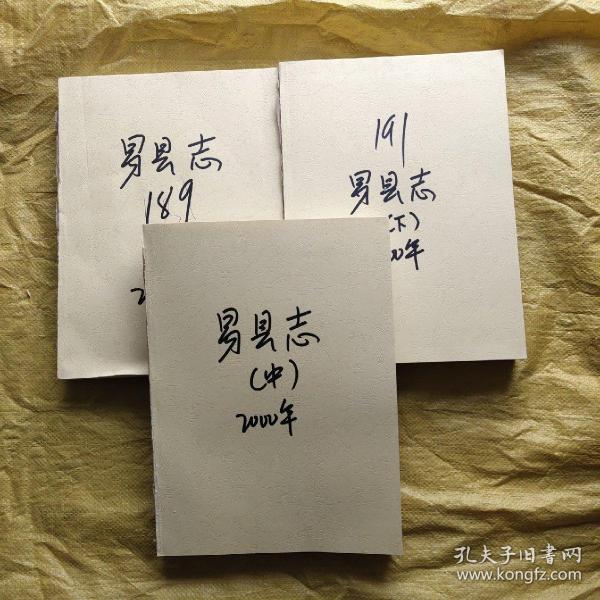 易县志
189
2
191
易县志
(下)
00年
易县志
(中)
2000年
孔夫子旧書网
www.kongfz.com